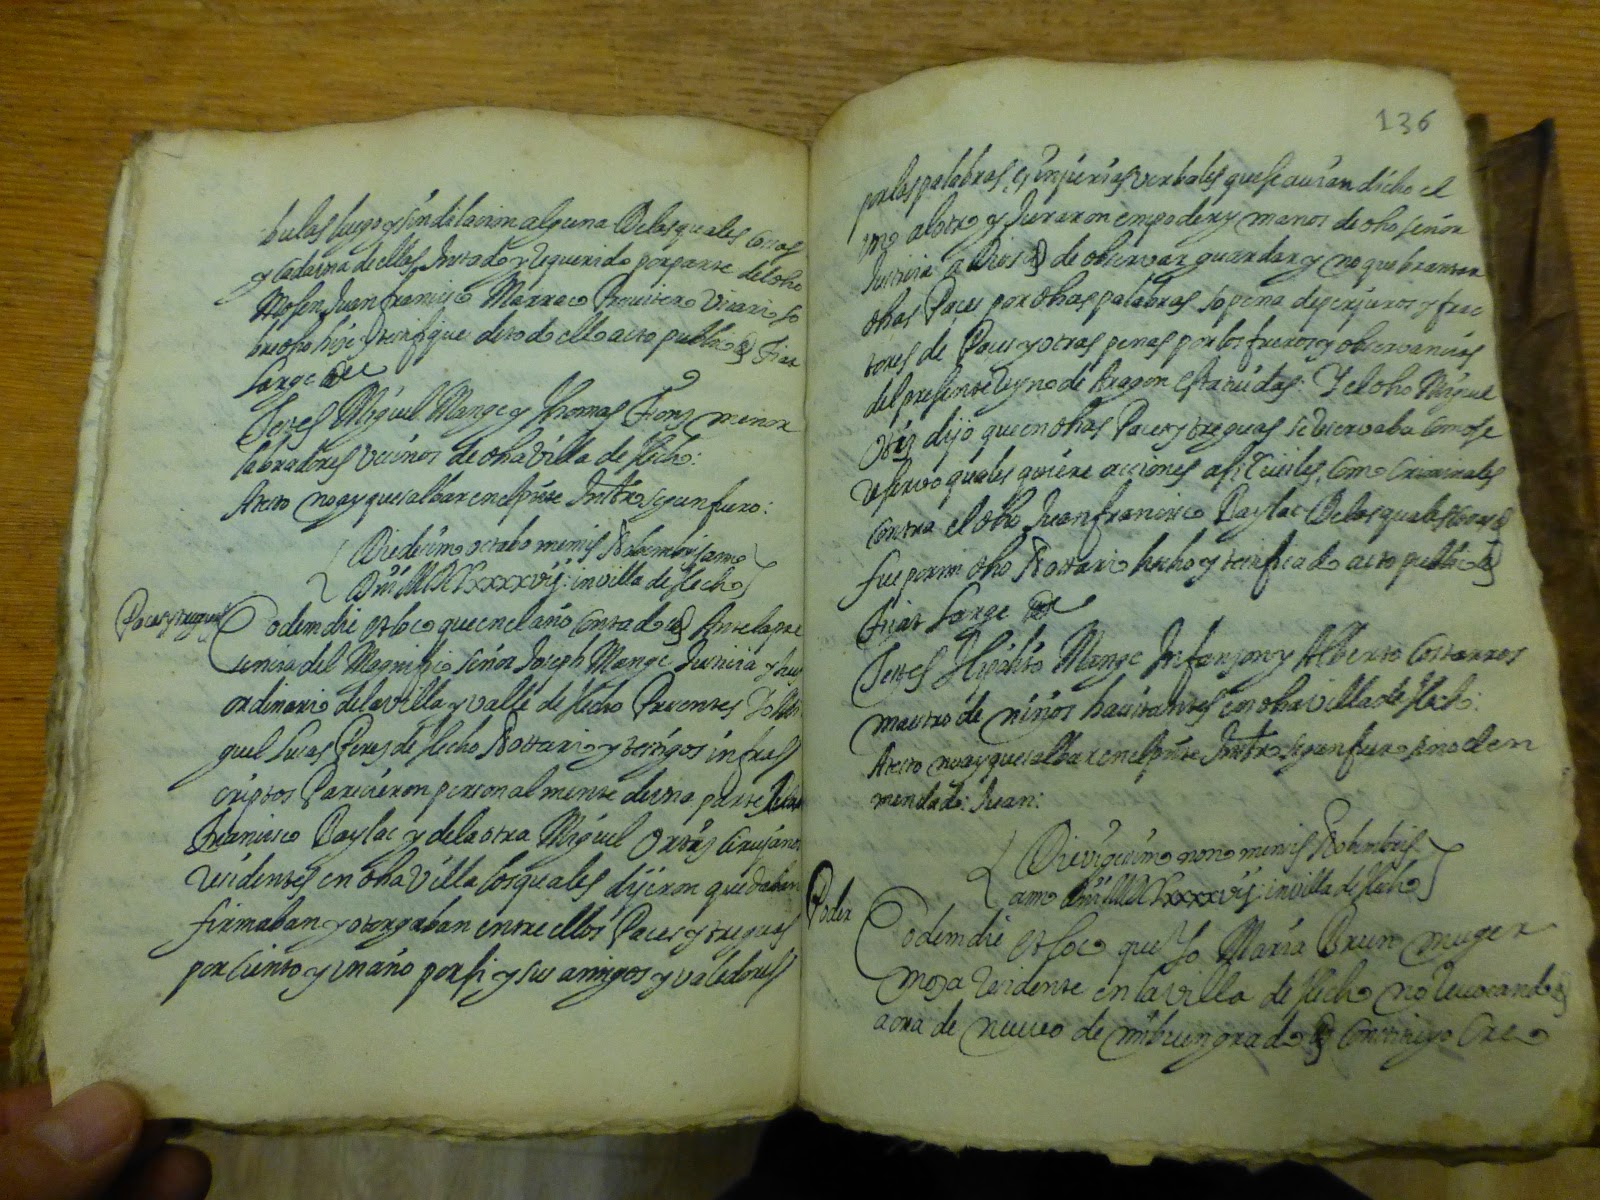 bulas luego y sin dilacion alguna De las quales cosas
y cada una de ellas Instado y Requerido por parte del dho
Mosen Juan francisco Marraco Presvitero Vicario
hize y testifique de todo ello acto publico &
large &c
Testes Miguel Mange y Thomas menor
labradores vecinos de dha Villa de Hecho:
Atesto no ay que salbar en el pnte Instro segun fuero:
Die decimo octabo mensis Nobembris anno
Dni MDCLxxxxvij: in villa de Hecho
Paces y treguas
Eodem die et loco que en el año contado & Ante la pre
sencia del Magnifico señor Joseph Mange Justicia y Juez
ordinario de la villa y valle de Hecho Presentes Yo Mi
guel Lucas Peres de Hecho Nottario y testigos infras
criptos Parecieron personalmente de una parte Juan
Francisco Baylac y de la otra Miguel Ortis Cirujanos
Residentes en dha Villa los quales dijeron que daban
firmaban y otorgaban entre ellos Paces y treguas
por ciento y un año por si y sus amigos y valedores
136
por las palabras, é injurias verbales que se auian dicho el
uno al otro y Juraron en poder y manos de dho señor
Justicia a Dios & de observar guardar y no quebrantar
dhas Paces por dhas palabras so pena de perjuros y frac
tores de Paces y otras penas por los fueros y observancias
del presente Reyno de Aragon estatuidas: Y el dho Miguel
Ortiz dijo que en dhas Paces y treguas se reservaba como se
reservo quales quiere acciones asi Ciuiles, como Criminales
contra el dho Juan francisco Baylac De las quales cosas &
fue por mi dho Nottario hecho y testificado acto publico &
Fiat large &c
Testes Hipolito Mange Infanzon y Alberto Costarros
maestro de niños havitantes en dha villa de Hecho:
Atesto no ay que salbar en el pnte Instro segun fuero sino el en
mendado: Juan:
Die vigecimo nono mensis Nobembris
anno Dni MDCLxxxxvij: in villa de Hecho
Poder
Eodem die et loco que Yo Maria Brun muger
moza Residente en la villa de Hecho no Reuocando &
aora de nueuo de mi buen grado & Constituyo Cre